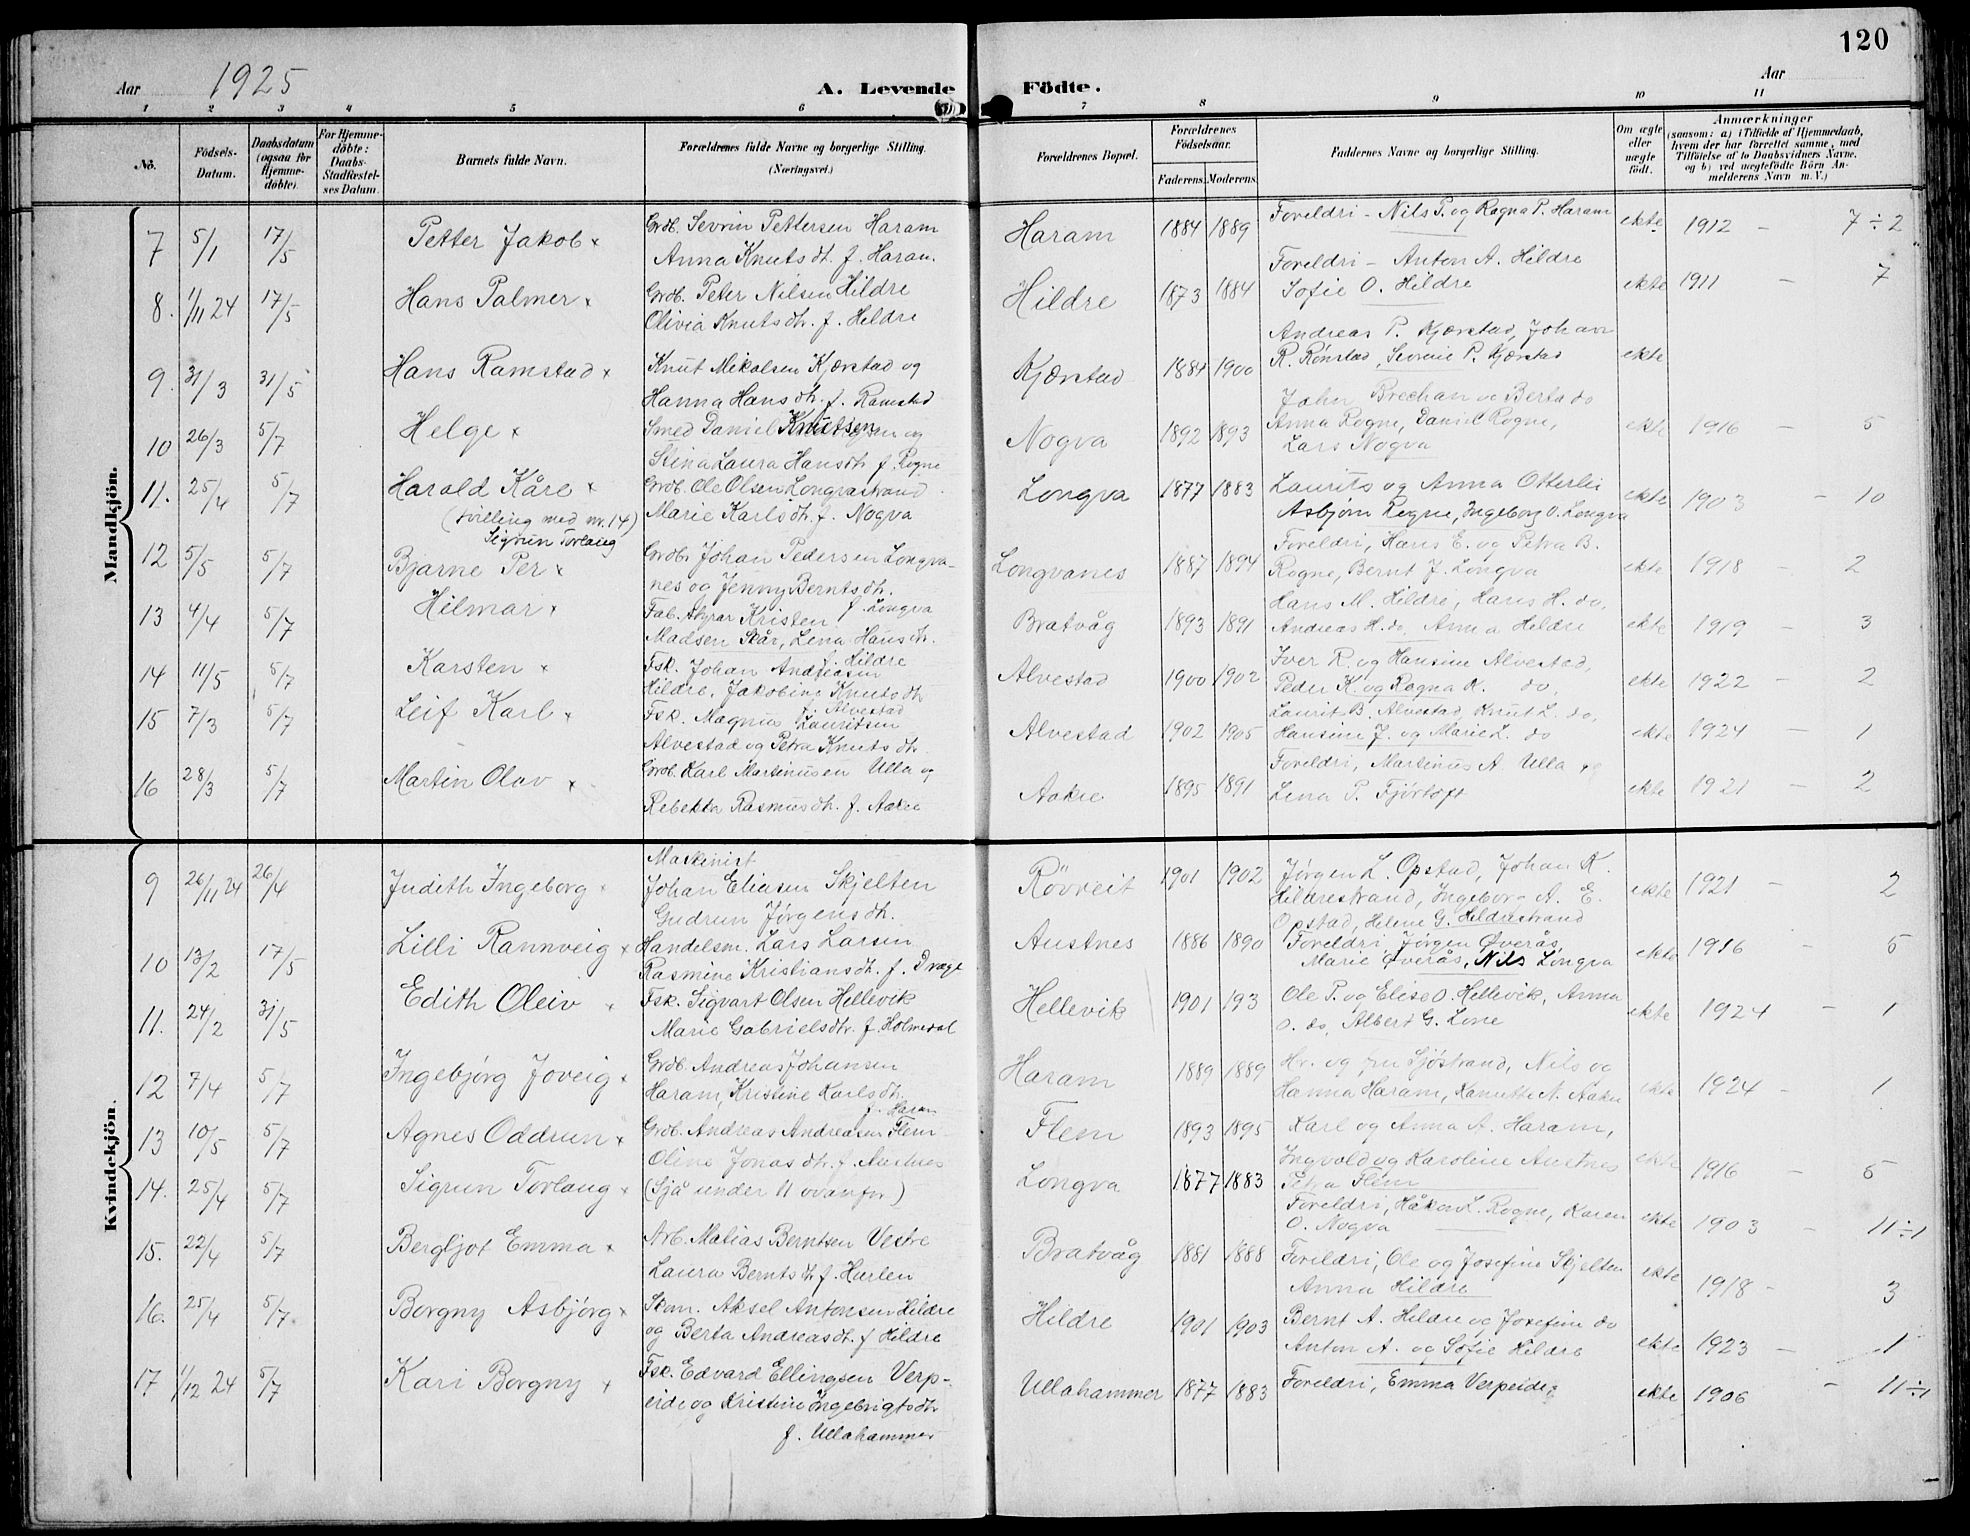 120
Aar 1925 A. Levende Födte. Aar
1 2 3 4 5 6 7 8 9 10 11
No.
Födsels-Datum.
Daabsdatum (ogsaa for Hjemmedöbte).
For Hjemmedöbte: Daabs-Stadfæstelses Datum.
Barnets fulde Navn.
Forældrenes fulde Navne og borgerlige Stilling. (Næringsvei.)
Forældrenes Bopæl.
Forældrenes Födselsaar.
Faderens. Moderens.
Faddernes Navne og borgerlige Stilling.
Om ægte eller uægte födt.
Anmærkninger
(saasom: a) i Tilfælde af Hjemmedaab, hvem der har forrettet samme, med Tilföielse af to Daabsvidners Navne, og b) ved uægtefödte Börn Anmelderens Navn m. V.)
Mandkjön.
7 5/1 17/5 Petter Jakob x Grdb. Sevrin Pettersen Haram
Anna Knutsdt. f. Haram. Haram 1884 1889 Foreldri - Nils P. og Ragna P. Haram ekte 1912 - 7÷2
8. 1/11 24 17/5 Hans Palmer x Grdb. Peter Nilsen Hildre
Olivia Knutsdtr. f. Hildre Hildre 1873 1884 Foreldri - Anton A. Hildre
Sofie O. Hildre ekte 1911 - 7
9. 31/3 31/5 Hans Ramstad x Knut Mikalsen Kjærstad og
Hanna Hansdtr. f. Ramstad Kjærstad 1884 1900 Andreas P. Kjærstad, Johan
R. Rønstad, Sevrine P. Kjærstad ekte
10 26/3 5/7 Helge x Smed Daniel Knutsen og
Stina Laura Hansdtr f. Rogne Nogva 1892 1893 John Brechan og Berta do
Anna Rogne, Daniel Rogne,
Lars Nogva ekte 1916 - 5
11. 25/4 5/7 Harald Kåre x
(tvilling med nr. 14)
Sigrun Torlaug Grdb. Ole Olsen Longvastrand
Marie Karlsdtr. f. Nogva Longva 1877 1883 Laurits og Anna Otterlei
Asbjørn Rogne, Ingeborg O. Longva ekte 1903 - 10
12 5/5 5/7 Bjarne Per x Grdbr Johan Pedersen Longva-
nes og Jenny Berntsdtr.
f. Longva Longvanes 1887 1894 Foreldri, Hans E. og Petra B.
Rogne, Bernt J. Longva ekte 1918 - 2
13 4/4 5/7 Hilmar x Fab. styrar Kristen
Madsen Skår, Lena Hansdtr.
f. Hildre Bratvåg 1893 1891 Hans M. Hildre, Hans H. do.
Andreas H. do, Anna Hildre ekte 1919 - 3
14 11/5 5/7 Karsten x Fsk. Johan Andreasen
Hildre, Jakobine Knutsdtr
f. Alvestad Alvestad 1900 1902 Iver R. og Hansine Alvestad,
Peder K. og Ragna K. do, ekte 1922 - 2
15 7/3 5/7 Leif Karl x Fsk. Magnus Lauritsen
Alvestad og Petra Knutsdtr. Alvestad 1902 1905 Laurit B. Alvestad, Knut L. do,
Hansine J. og Marie L. do ekte 1924 - 1
16 28/3 5/7 Martin Olav x Grdb. Karl Martinusen Ulla og
Rebekka Rasmusdtr. f. Aakre Aakre 1895 1891 Foreldri, Martinus A Ulla
Lena P. Fjørtoft ekte 1921 - 2
Kvindekjön.
9 26/11 24 26/4 Judith Ingeborg x Maskinist
Johan Eliasen Skjelten
Gudrun Jørgensdtr. Rövreit 1901 1902 Jørgen L. Opstad, Johan K.
Hildrestrand, Ingeborg A. E.
Opstad, Helene G. Hildrestrand ekte 1921 - 2
10 13/2 17/5 Lilli Rannveig x Handelsm. Lars Larsen
Rasmine Kristiansdtr. f. Drage Austnes 1886 1890 Foreldri, Jørgen Øverås,
Marie Øverås, Nils Longva ekte 1916 - 5
11. 24/2 31/5 Edith Oleiv x Fsk. Sigvart Olsen Hellevik
Marie Gabrielsdtr. f. Holmedal Hellevik 1901 193 Ole P. og Elise O. Hellevik, Anna
O. do, Albert G. Lone ekte 1924 - 1
12 7/4 5/7 Ingebjörg Joveig x Grdb. Andreas Johansen
Haram, Kristine Karlsdtr.
f. Haram Haram 1889 1889 Hr. og fru Sjöstrand, Nils og
Hanna Haram, Kanutte N. Aakre ekte 1924 - 1
13 10/5 5/7 Agnes Oddrun x Grdb. Andreas Andreasen Flem
Oline Jonasdtr. f. Austnes Flem 1893 1895 Karl og Anna A. Haram,
Ingvald og Karoline Austnes
Petra Flem ekte 1916 - 5
14. 25/4 5/7 Sigrun Torlaug x (Sjå under 11 ovanfor) Longva 1877 1883 Foreldri, Håkon L. Rogne, Karen
O. Nogva ekte 1903 - 11÷1
15. 22/4 5/7 Bergljot Emma x Arb. Matias Berntsen Vestre
Laura Berntsdtr f. Hurlen Bratvåg 1881 1888 Foreldri, Ole og Josefine Skjelten
Anna Hildre ekte 1918 - 3
16. 25/4 5/7 Borgny Asbjörg x Skom. Aksel Antonsen Hildre
og Berta Andreasdtr. f Hildre Hildre 1901 1903 Bernt A. Hildre og Josefine do
Anton A. og Sofie Hildre ekte 1923 - 1
17 1/12 24 5/7 Kari Borgny x Fsk. Edvard Ellingsen Verp-
eide og Kristine Ingebrigtsdtr
f. Ullahammer Ullahammer 1877 1883 Foreldri, Emma Verpeide ekte 1906 - 11÷1